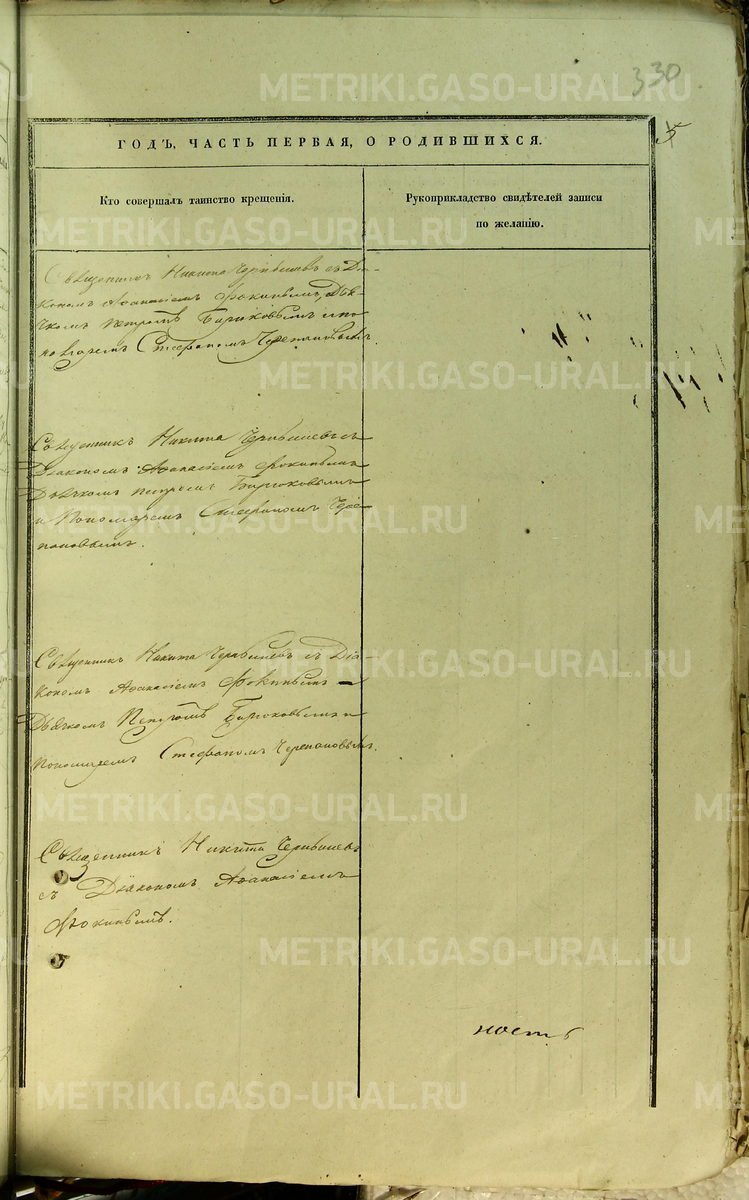 330
5
ГОДЪ, ЧАСТЬ ПЕРВАЯ, О РОДИВШИХСЯ.
Кто совершалъ таинство крещенія.
Рукоприкладство свидѣтелей записи
по желанію.
Священникъ Никита Чернышевъ съ Діа-
кономъ Аѳанасіемъ Ѳокинымъ, Дья-
чкомъ Петромъ Бирюковымъ и по
номаремъ Стефаномъ Черепановымъ
Священникъ Никита Чернышевъ съ
Діакономъ Аѳанасіемъ Ѳокинымъ
Дьячкомъ Петромъ Бирюковымъ
и Пономаремъ Стефаномъ Чере
пановымъ.
Священникъ Никита Чернышевъ съ Діа-
кономъ Аѳанасіемъ Ѳокинымъ
Дьячкомъ Петромъ Бирюковымъ и
Пономаремъ Стефаномъ Черепановымъ.
Священникъ Никита Чернышевъ
съ Діакономъ Аѳанасіемъ
Ѳокинымъ.
ность
METRIKI.GASO-URAL.RU